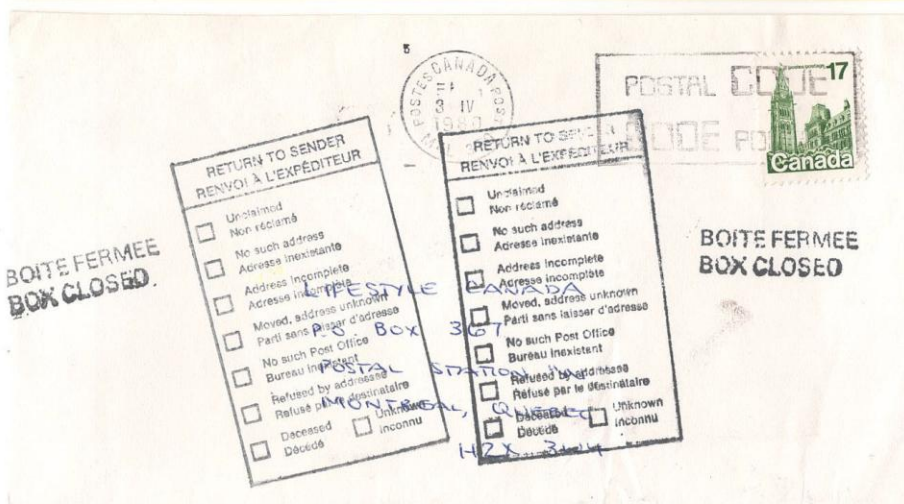 5
POSTES CANADA POST
3 IV
1980
POSTAL CODE
CODE POSTAL
17
Canada
RETURN TO SENDER
RENVOI À L'EXPÉDITEUR
Unclaimed
Non réclamé
No such address
Adresse inexistante
Address incomplete
Adresse incomplète
Moved, address unknown
Parti sans laisser d'adresse
No such Post Office
Bureau inexistant
Refused by addressee
Refusé par le destinataire
Deceased
Décédé
Unknown
Inconnu
RETURN TO SENDER
RENVOI À L'EXPÉDITEUR
Unclaimed
Non réclamé
No such address
Adresse inexistante
Address incomplete
Adresse incomplète
Moved, address unknown
Parti sans laisser d'adresse
No such Post Office
Bureau inexistant
Refused by addressee
Refusé par le destinataire
Deceased
Décédé
Unknown
Inconnu
BOITE FERMEE
BOX CLOSED
BOITE FERMEE
BOX CLOSED
LIFESTYLE CANADA
P.O. BOX 367
POSTAL STATION
MONTREAL, QUEBEC
H2X